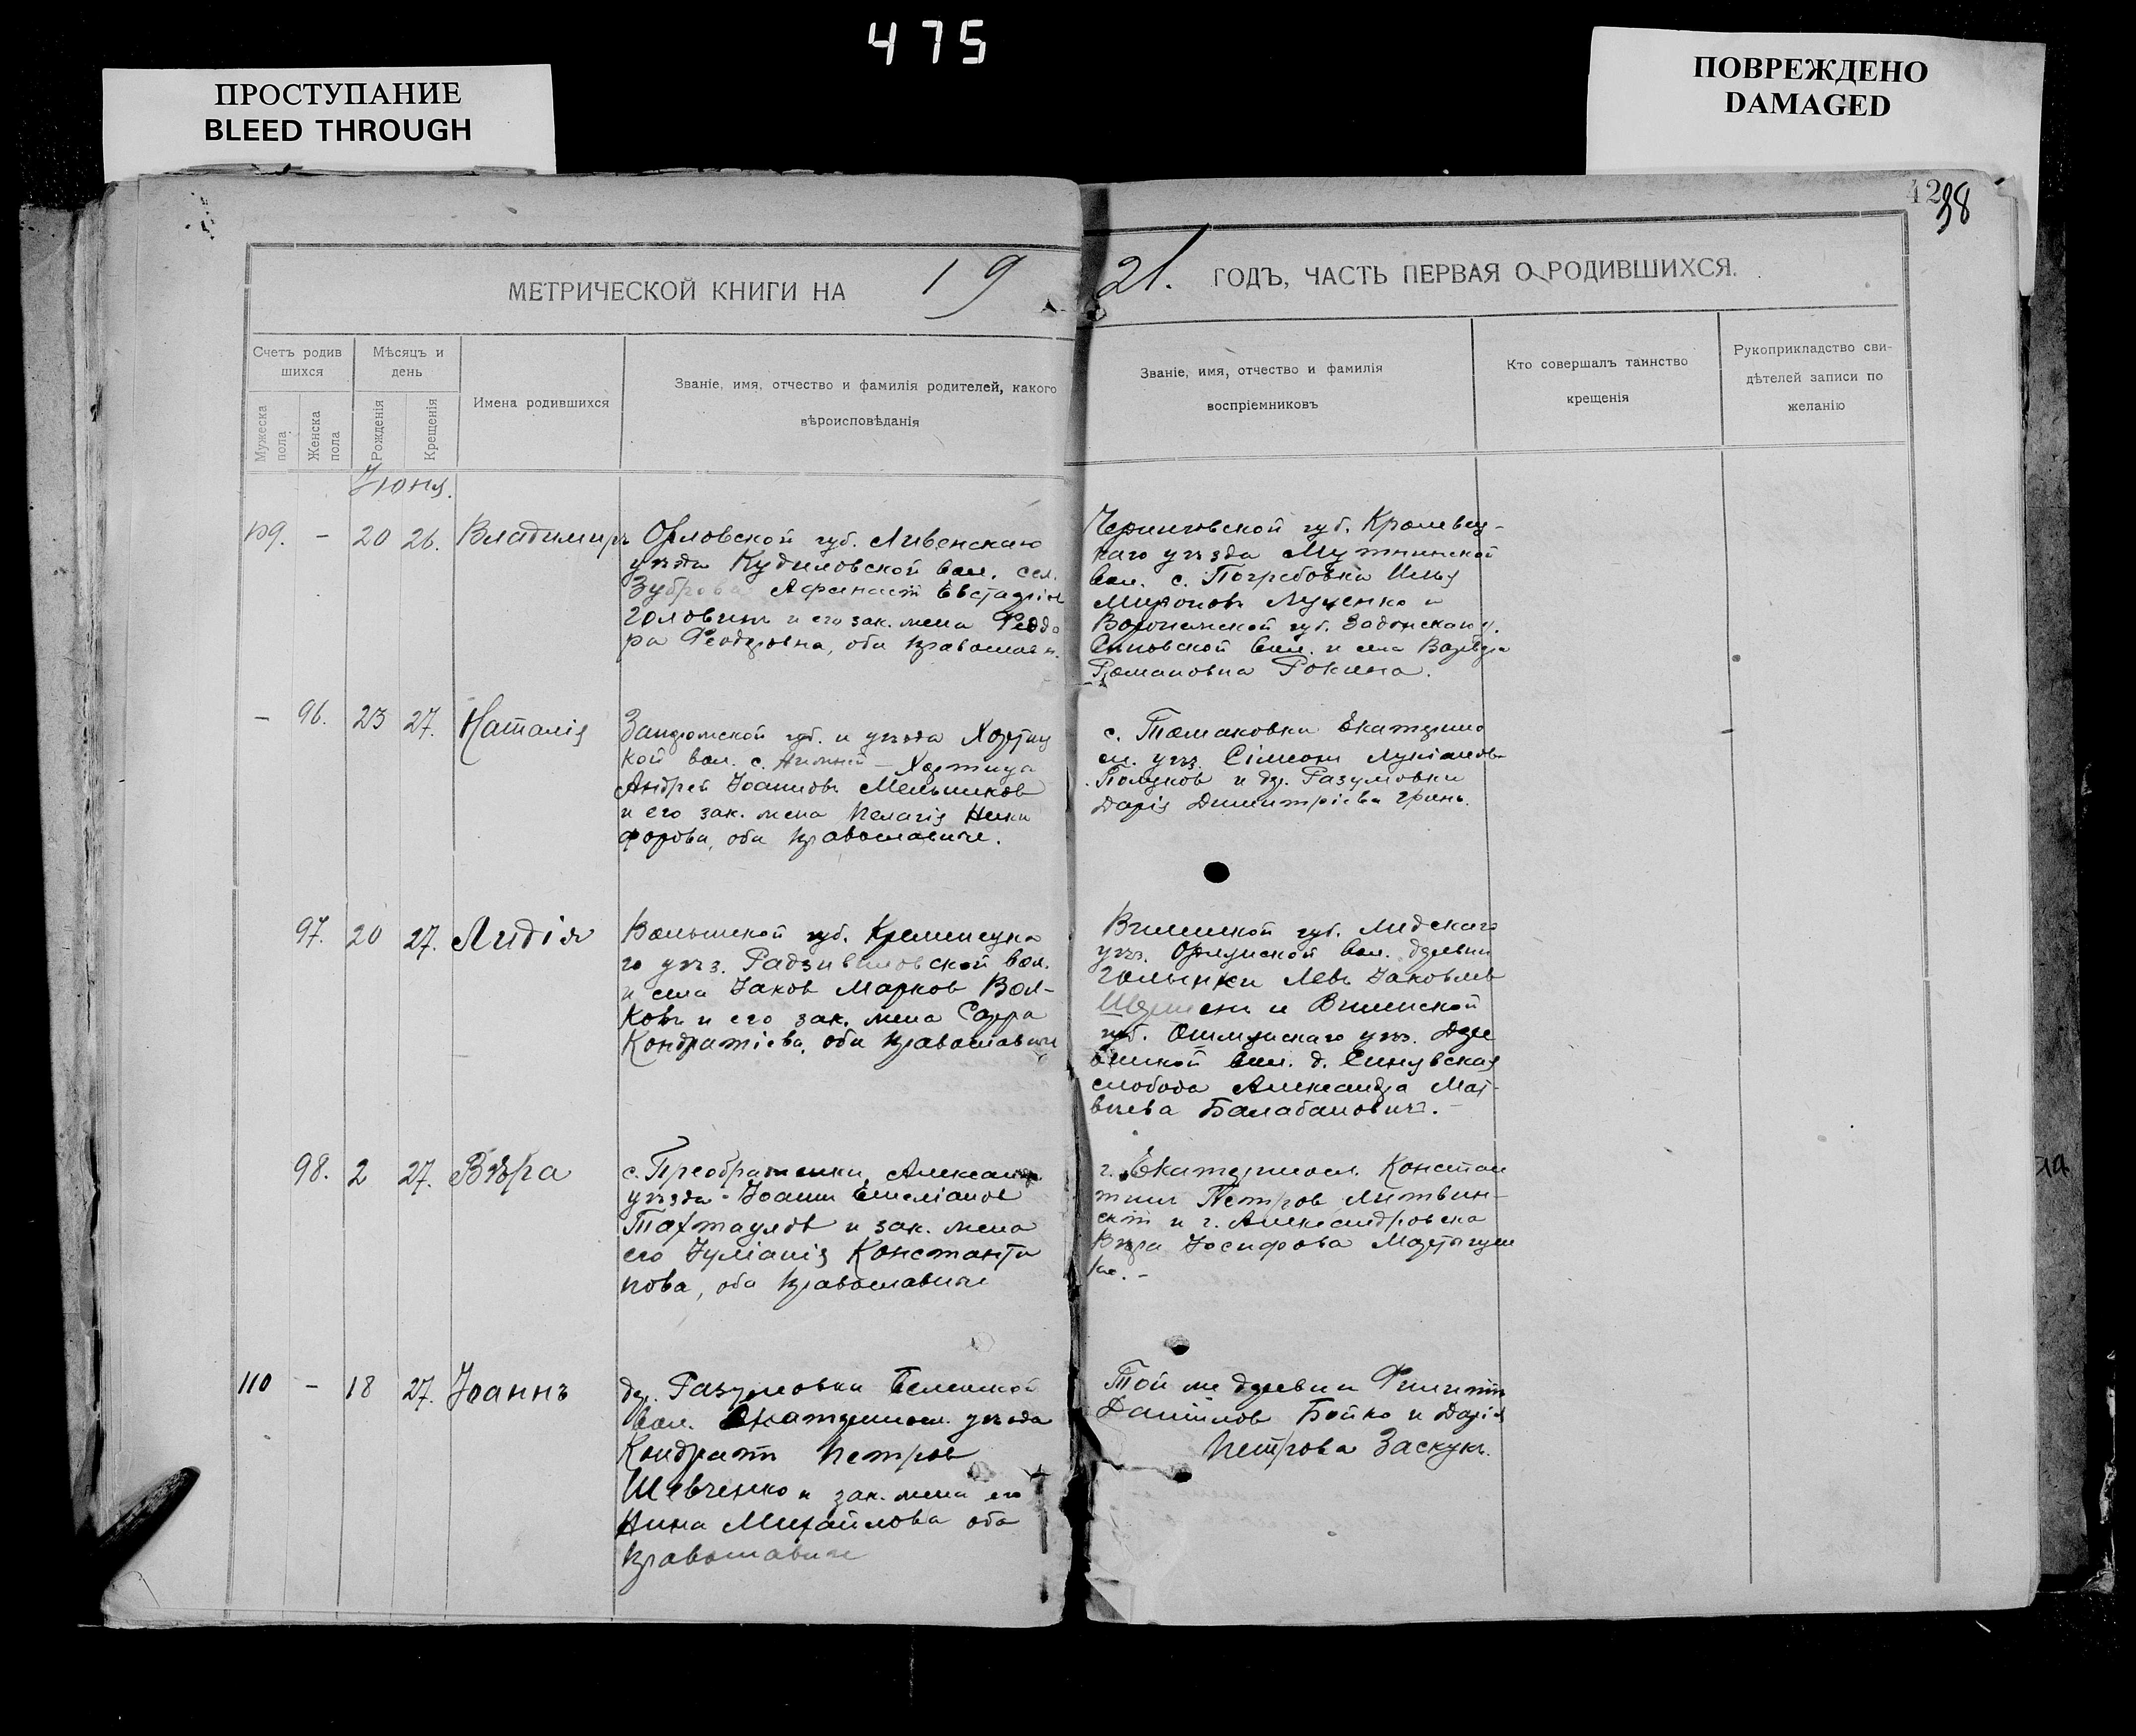 475
ПРОСТУПАНИЕ
BLEED THROUGH
ПОВРЕЖДЕНО
DAMAGED
42
38
МЕТРИЧЕСКОЙ КНИГИ НА 19 21. ГОДЪ, ЧАСТЬ ПЕРВАЯ О РОДИВШИХСЯ.
Счетъ родив
шихся
Мѣсяцъ и
день
Мужеска
пола
Женска
пола
Рожденія
Крещенія
Имена родившихся
Званіе, имя, отчество и фамилія родителей, какого
вѣроисповѣданія
Званіе, имя, отчество и фамилія
воспріемниковъ
Кто совершалъ таинство
крещенія
Рукоприкладство сви-
дѣтелей записи по
желанію
Іюня.
109. - 20 26. Владимиръ
Орловской губ. Ливенскаго
уѣзда вол. сел.
Головинъ и его зак. жена Феодо
ра Феодоровна, оба православн.
Черниговской губ. Кролевец-
каго уѣзда
вол. с. Погребовка Илья
Мироновъ Луценко и
Воронежской губ. Задонскаго у.
вол. и села Варвара
Романовна Рокина.
- 96. 23 27. Наталія
губ. и уѣзда Хортиц
кой вол. с. Нижней - Хортица
Андрей Іоанновъ Мельников
и его зак. жена Пелагія Ники
форова, оба православные.
с. Томаковки Екатерино
сл. уѣз. Сімеонъ Лукіановъ
и др. Разумовки
Дарія Димитріева Гринь.
97. 20 27. Лидія
Волынской губ. Кременецка
го уѣз. Радзивиловской вол.
и села Іаков Марков Вол-
ковъ и его зак. жена Сарра
Кондратіева, оба православные
Виленской губ. Лидскаго
уѣз. вол. деревни
Голынки Левъ Іаковлев
и Виленской
губ. Ошмянскаго уѣз.
вол. д.
слобода Александра Мат-
вѣева Балабановичъ. -
98. 2 27. Вѣра
с. Преображенки, Александр
уѣзда - Іоанн Емеліанов
и зак. жена
его Іуліанія Константи
нова, оба православные
г. Екатериносл. Констан
тин Петров Литвин-
скій и г. Александровска
Вѣра Іосифова
ко. -
110 - 18 27. Іоаннъ
др. Разумовки Беленской
вол. Екатериносл. уѣзда
Кондратъ Петров
Шевченко и зак. жена его
Нина Михайлова оба
православные
Той же деревни Филиппъ
Даніилов Бойко и Дарія
Петрова